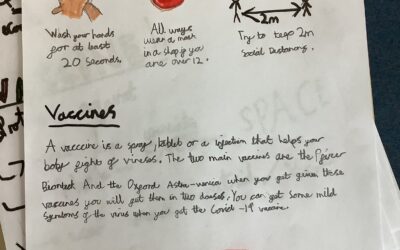 2m
Wash your hands
for at least
20 seconds.
All ways
wear a mask
in a shop if you
are over 12.
Try to keep 2m
Social Distancing.
Vaccines
A vaccine is a spray, tablet or a injection that helps your
body fight of viruses. The two main vaccines are the Pfizer
Biontech And the Oxford Astra-veneca when you get given these
vaccines you will get them in two doses. You can get some mild
symptoms of the virus when you get the Covid-19 vaccine.